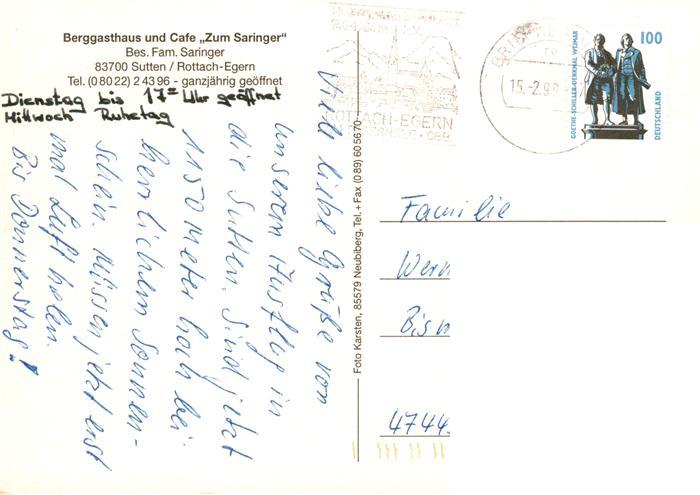 Berggasthaus und Cafe „Zum Saringer“
Bes. Fam. Saringer
83700 Sutten / Rottach-Egern
Tel. (0 80 22) 2 43 96 - ganzjährig geöffnet
Dienstag bis 17= Uhr geöffnet
Mittwoch Ruhetag
Viele liebe Grüße von
unserem Ausflug in
die Sutten. Sind jetzt
1150 meter hoch bei
herrlichem Sonnen-
schein. Müssen jetzt erst
mal Luft holen.
Bis Donnerstag!
Foto Karsten, 85579 Neubiberg, Tel. + Fax (089) 605670
ROTTACH-EGERN
15.-2.98
100
GOETHE-SCHILLER-DENKMAL WEIMAR
DEUTSCHLAND
Familie
Wern
Bisn
4744